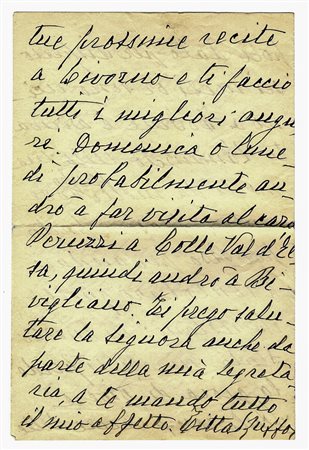 tue prossime recite
a Livorno e ti faccio
tutti i migliori augu
ri. Domenica o lune
dì probabilmente an
drò a far visita al caro
Peruzzi a Colle Val d'El
sa, quindi andrò a Bi-
vigliano. Ti prego salu-
tare la signora anche da
parte della mia segreta
ria, a te mando tutto
il mio affetto. Titta Ruffo